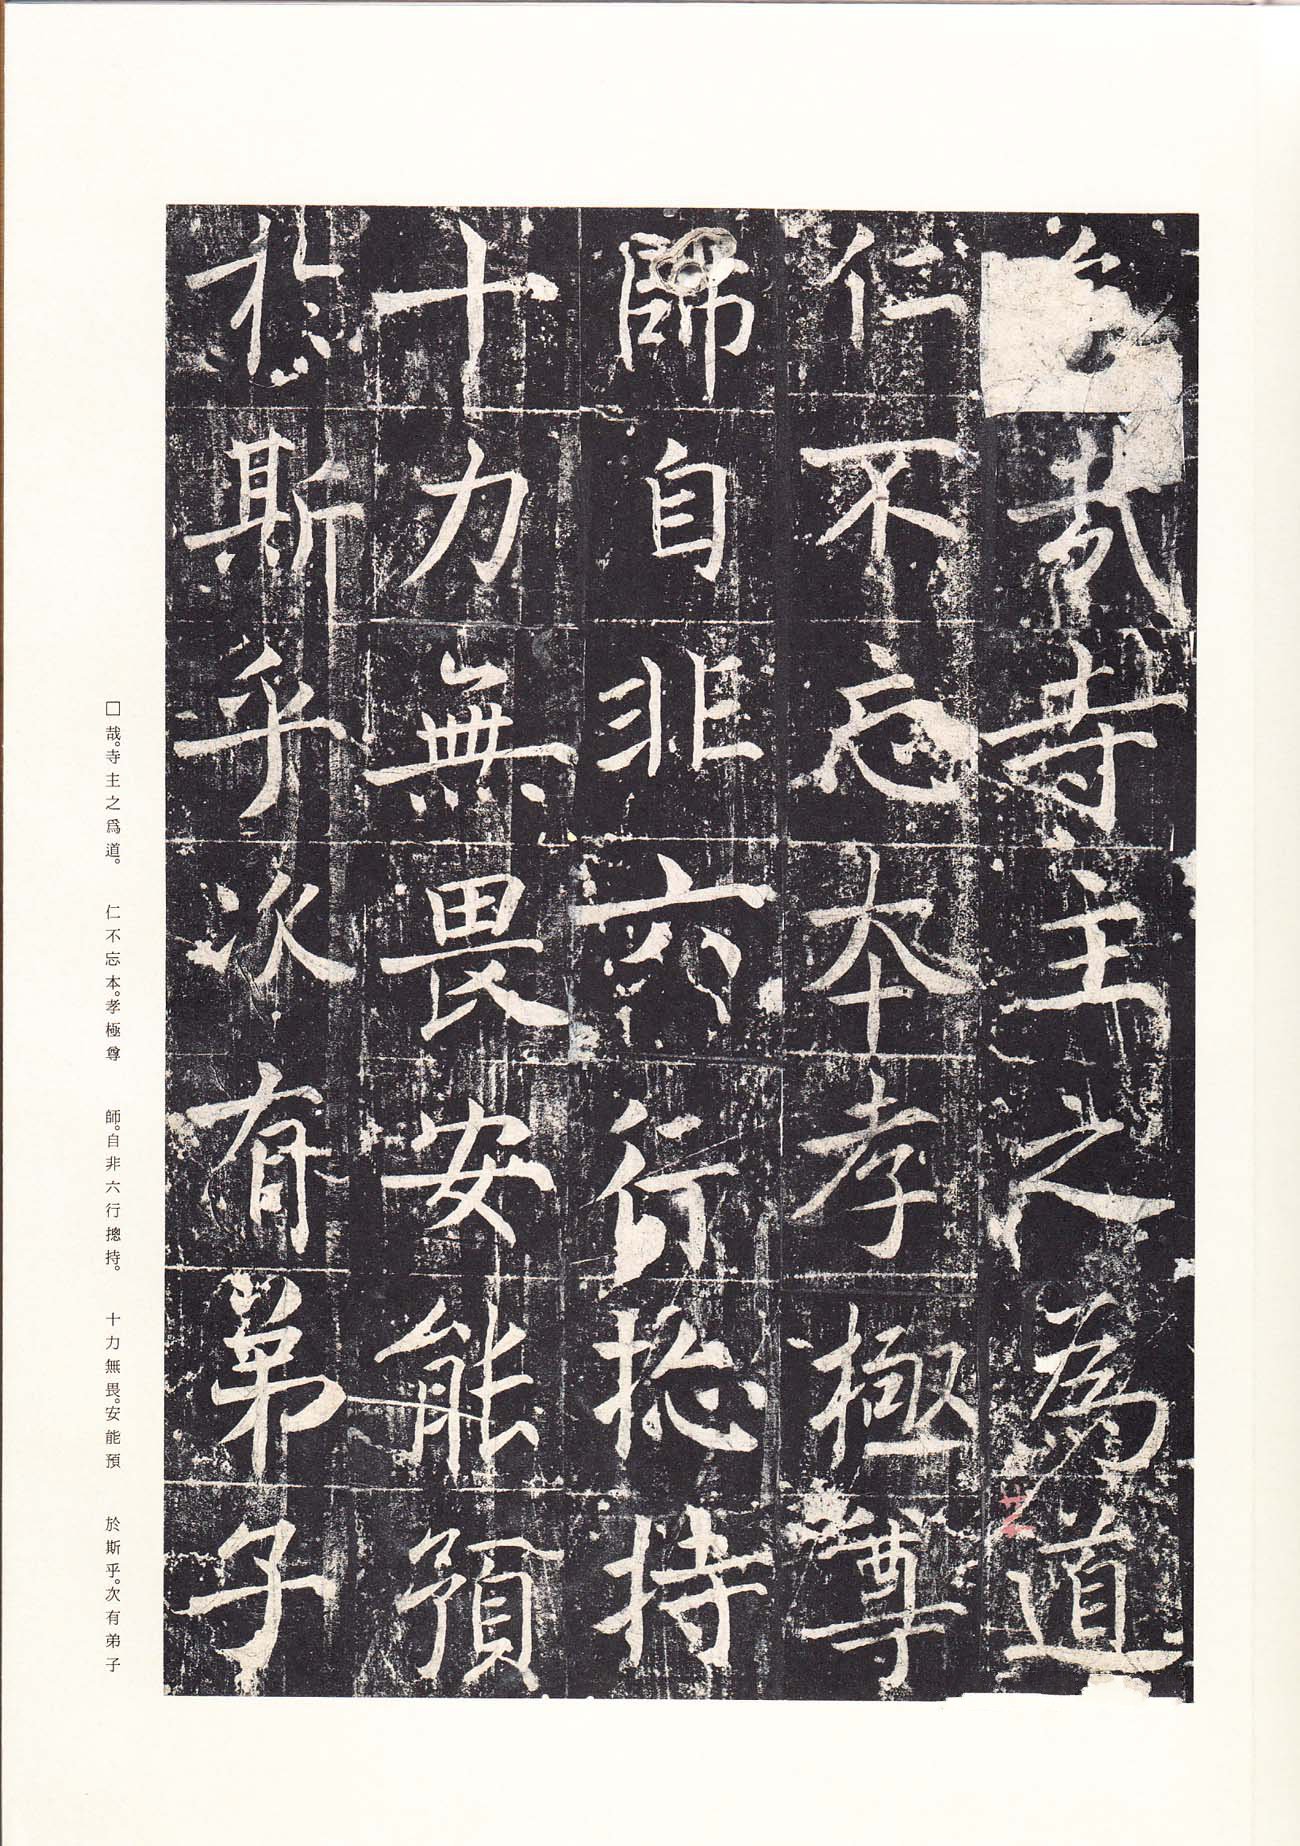 哉寺主之為道
仁不忘本孝極尊
師自非六行揔持
十力無畏安能預
於斯乎次有弟子
□哉。寺主之爲道。 仁不忘本。孝極尊 師。自非六行摠持。 十力無畏。安能預 於斯乎。次有弟子